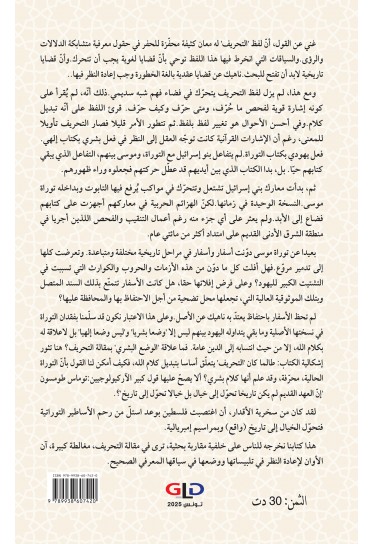 غني عن القول، أنّ لفظ 'التحريف' له معان كثيفة محفّزة للحفر في حقول معرفية متشابكة الدلالات
والرؤى.والسياقات التي انخرط فيها هذا اللفظ توحي بأنّ قضايا لغوية يجب أن تتحرك.وأنّ قضايا
تاريخية لابد أن تفتح للبحث.ناهيك عن قضايا عقدية بالغة الخطورة وجب إعادة النظر فيها..
ومع هذا، لم يزل لفظ التحريف يتحرّك في فضاء فهم شبه سديمي. ذلك أنّه، لم يُقرأ على
كونه إشارة قوية لفحص ما حُرّف، ومتى حرّف وكيف حرّف. قرئ اللفظ على أنّه تبديل
كلام.وفي أحسن الأحوال هو تغيير لفظ بلفظ.ثم تتطور الأمر قليلا فصار التحريف تأويلا
للمعنى، رغم أن الإشارات القرآنية كانت توجّه العقل إلى النظر في فعل بشري بكتاب إلهي.
فعل يهودي بكتاب التوراة.لم يتفاعل بنو إسرائيل مع التوراة، وموسى بينهم، التفاعل الذي يبقي
كتابهم حيّا. بل، بدا الكتاب الذي بين أيديهم قد عطّل حركتهم فجعلوه وراء ظهورهم.
ثم، بدأت معارك بني إسرائيل تشتعل وتتحرّك في مواكب يُرفع فيها التابوت وبداخله توراة
موسى.النسخة الوحيدة في زمانها.لكنّ الهزائم الحربية في معاركهم أجهزت على كتابهم
فضاع إلى الأبد.ولم يعثر على أي جزء منه رغم أعمال التنقيب والفحص اللذين أجريا في
منطقة الشرق الأدنى القديم على امتداد أكثر من مائتي عام.
بعيدا عن توراة موسى دوّنت أسفار وأسفار في مراحل تاريخية مختلفة ومتباعدة. وتعرضت كلها
إلى تدمير مروّع.فهل أفلت كل ما دوّن من هذه الأزمات والحروب والكوارث التي تسببت في
التشتيت الكبير لليهود؟ وعلى فرض إفلاتها حقا، هل كانت الأسفار تتمتّع بذلك السند المتصل
وبتلك الموثوقية العالية التي، تجعلها محل تضحية من أجل الاحتفاظ بها والمحافظة عليها؟
لم تحظ الأسفار باحتفاظ يعتدّ به ناهيك عن الأصل.وعلى هذا الاعتبار نكون قد سلّمنا بفقدان التوراة
في نسختها الأصلية وما بقي يتداوله اليهود بينهم ليس إلا 'وضعا بشريا' وليس وضعا إلهيا' بل لا علاقة له
بكلام الله، إلا من حيث انتسابه إلى الدين عامة. فما علاقة 'الوضع البشري' بمقالة التحريف؟ هنا تثور
إشكالية الكتاب: طالما كان 'التحريف' يتعلّق أساسا بتبديل كلام الله، فكيف أمكن لنا القول بأنّ التوراة
الحالية، محرّفة، وقد علم أنها كلام بشري؟ ألا يصحّ عليها قول كبير الأركيولوجيين:توماس طومسون
إنّ العهد القديم لم يكن تاريخا تحوّل إلى خيال بل خيالا تحوّل إلى تاريخ'؟.
لقد كان من سخرية الأقدار، أن اغتصبت فلسطين بوعد استلّ من رحم الأساطير التوراتية
فتحوّل الخيال إلى تاريخ (واقع) وبمراسيم إمبريالية.
هذا كتابنا نخرجه للناس على خلفية مقاربة بحثية، ترى في مقالة التحريف، مغالطة كبيرة، آن
الأوان لإعادة النظر في تلبيساتها ووضعها في سياقها المعرفي الصحيح.
9 789938 607420
GLD
تونس 2025
الثمن: 30 دت